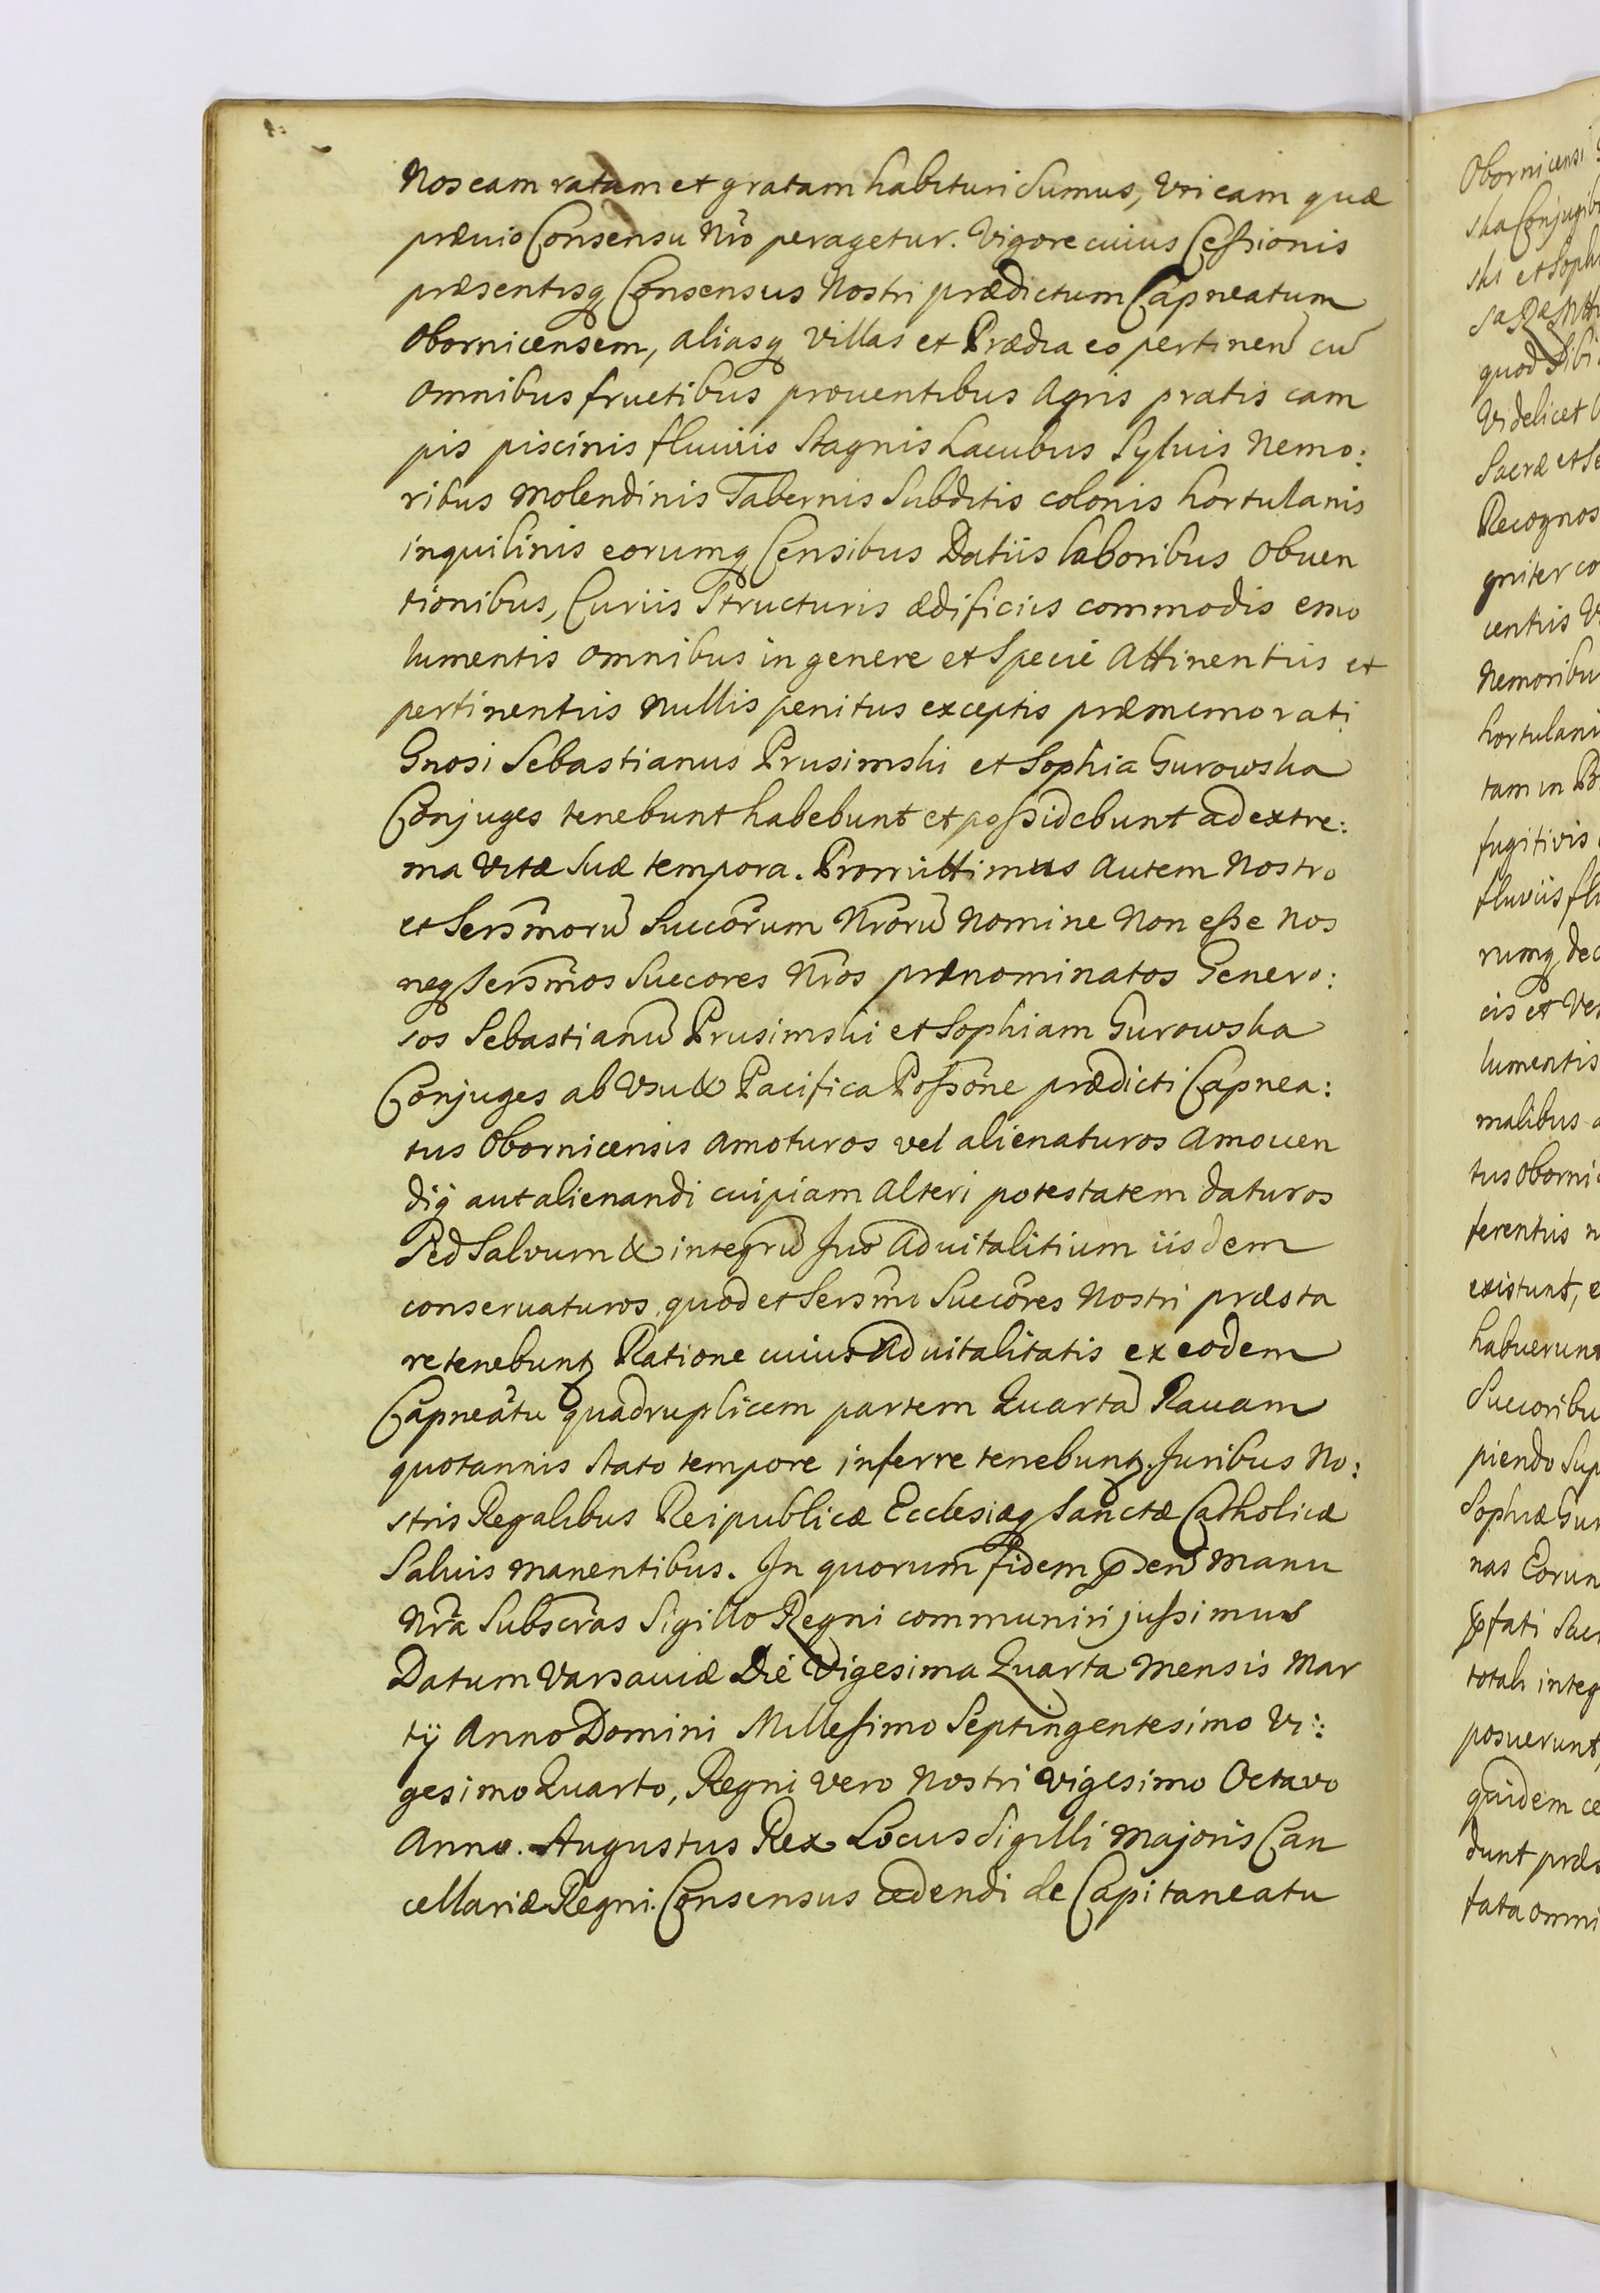 Nos eam ratam et gratam habituri Sumus, Uti eam quæ
præuio Consensu Nro peragetur. Vigore cuius Cessionis
præsentisq Consensus Nostri prædictum Capneatum
Obornicensem, aliasq villas et Prædia eo pertinen cu
omnibus fructibus prouentibus Agris pratis cam
pis piscinis fluuiis Stagnis Lacubus Syluis Nemo:
ribus Molendinis Tabernis Subditis colonis hortulanis
inquilinis eorumq Censibus Datiis laboribus Obuen
tionibus, Curiis Structuris ædificiis commodis emo
lumentis omnibus in genere et Specie Attinentiis et
pertinentiis Nullis penitus exceptis præmemorati
Gnosi Sebastianus Prusimski et Sophia Gurowska
Conjuges tenebunt habebunt et possidebunt ad extre:
ma Vitæ Suæ tempora. Promittimus Autem Nostro
et Sersmoru Succorum Nroru Nomine Non esse Nos
neq Sersmos Succores Nros prænominatos Genero:
sos Sebastianu Prusimski et Sophiam Gurowska
Conjuges ab Usu & Pacifica Possone prædicti Capnea:
tus Obornicensis Amoturos vel alienaturos Amouen
diq aut alienandi cuipiam Alteri potestatem daturos
Sed Saluum & integru Jus Aduitalitium iisdem
conseruaturos, quod et Sersmi Succores Nostri præsta
re tenebunt Ratione cuius Aduitalitatis ex eodem
Capneatu quadruplicem partem Quarta Rauam
quotannis Stato tempore inferre tenebunt. Juribus No:
stris Regalibus Reipublicæ Ecclesiæq Sanctæ Catholicæ
Saluis manentibus. In quorum fidem pden Manu
Nra Subscras Sigillo Regni communiri jussimus
Datum Varsauiæ Die Vigesima Quarta Mensis Mar
tij Anno Domini Millesimo Septingentesimo Vi:
gesimo Quarto, Regni vero Nostri vigesimo Octavo
Anno. Augustus Rex Locus Sigilli Majoris Can
cellariæ Regni. Consensus cedendi de Capitaneatu
Obornicensi
ska Conjugib
ski et Soph
quod Sibi
Videlicet
Sacræ et Se
Recognos
gniter co
centiis
Nemoribu
hortulani
tam in
fugitivis
fluviis flu
rumq dec
cis et Ve
lumentis
malibus
tus Oborni
ferentiis n
existunt, e
habuerunt
Succoribu
piendo Sup
Sophiæ Gur
nas Eorun
pfati Sac
totali integ
posuerunt,
quidem ce
dunt præs
tata omni